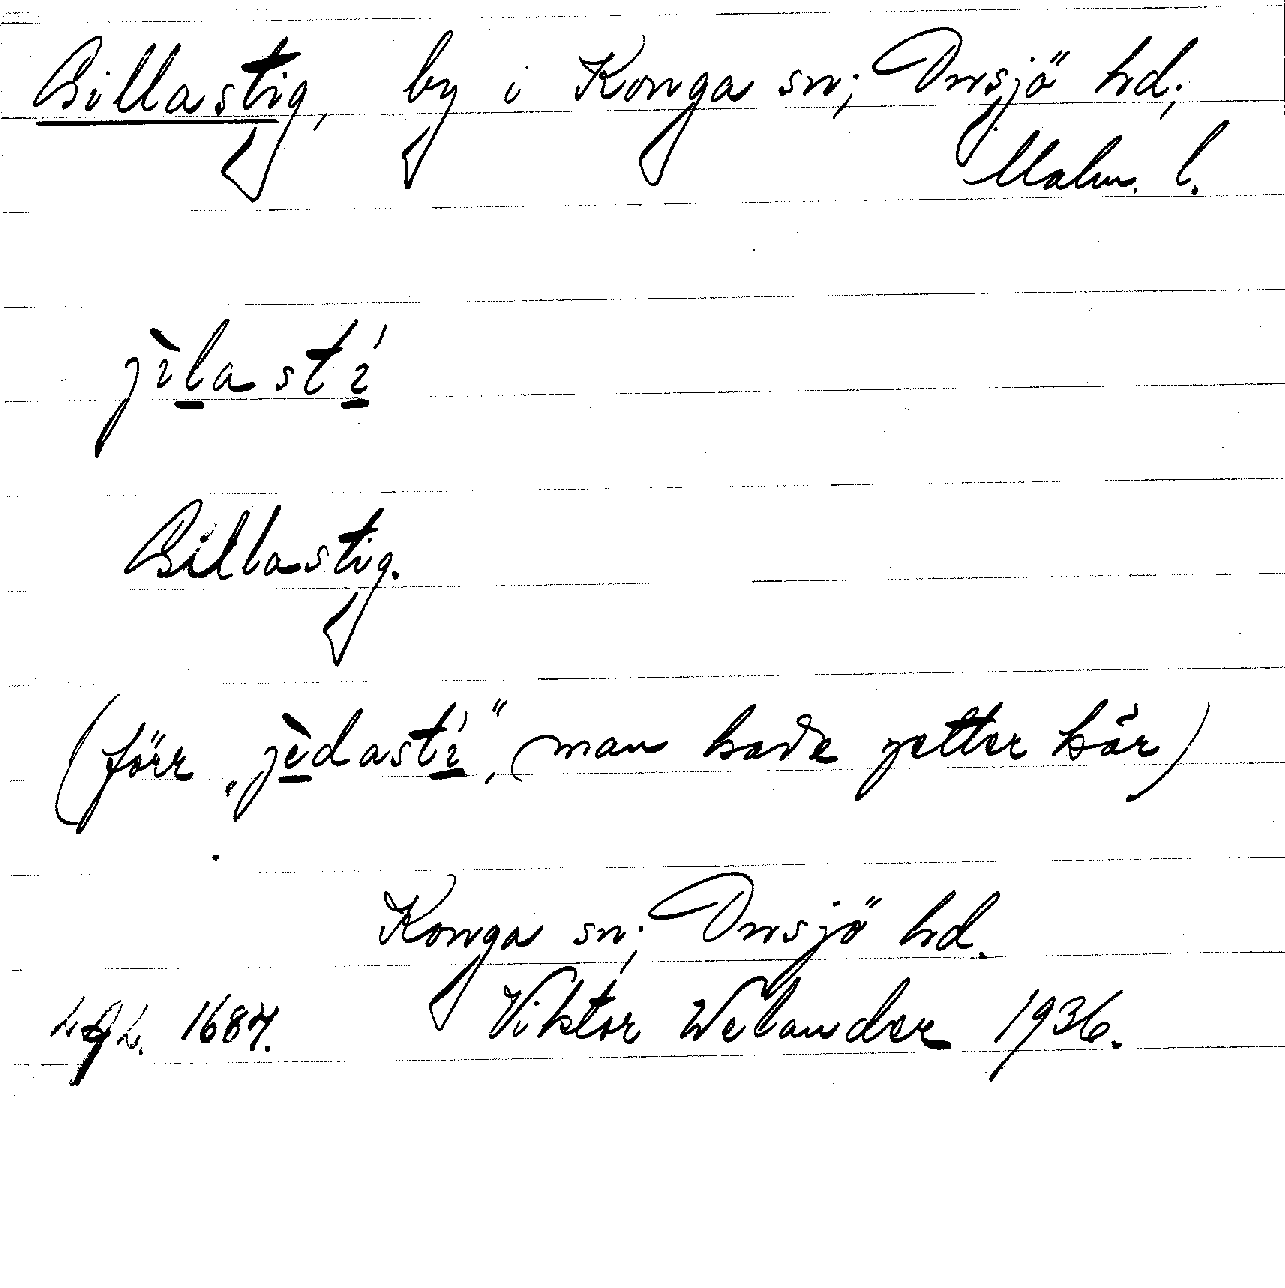 Gillastig, by i Konga sn; Onsjö hd;
Malm. l.
jìlastí
Gillastig.
(förr „jèdastí", man hade jetter här)
Konga sn; Onsjö hd.
1687. Viktor Welander 1936.